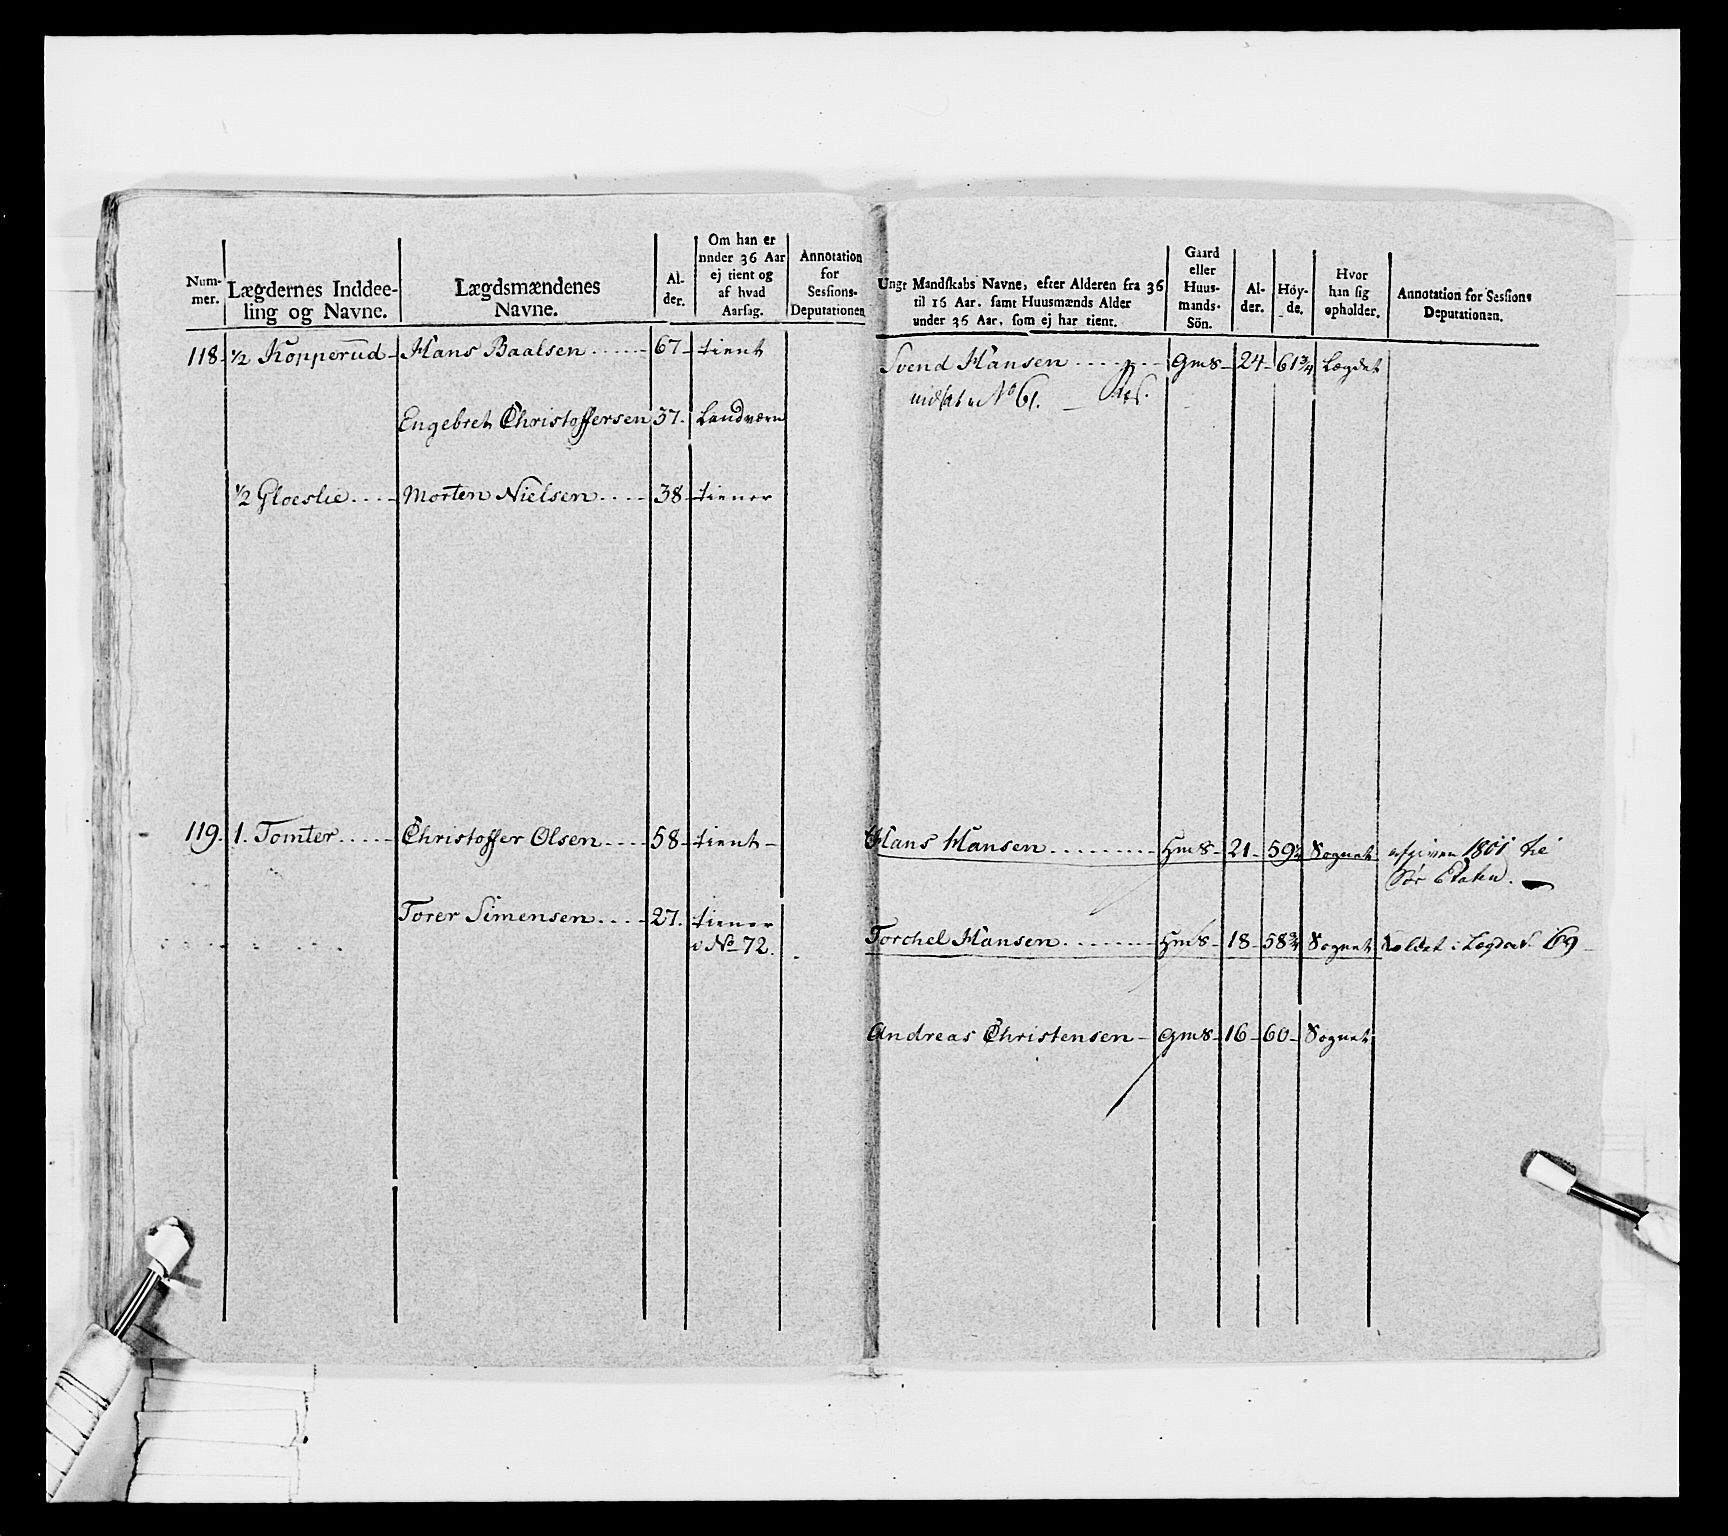 Num-
mer.
Lægdernes Inddee-
ling og Navne.
Lægdsmændenes
Navne.
Al-
der.
Om han er
under 36 Aar
ej tient og
af hvad
Aarsag.
Annotation
for
Sessions-
Deputationen
118. ½ Kopperud - Hans Baalsen ...... 67 - tient
Engebret Christoffersen 37. Landværn
½ Gloeslie .... Morten Nielsen .... 38 tiener
119. 1. Tomter ..... Christoffer Olsen .... 58 - tient -
Torer Simensen .... 27. tiener
i No 72.
Ungt Mandskabs Navne, efter Alderen fra 36
til 16 Aar, samt Huusmænds Alder
under 36 Aar, som ej har tient.
Gaard
eller
Huus-
mands-
Sön.
Al-
der.
Höy-
de.
Hvor
han sig
opholder.
Annotation for Sessions
Deputationen.
Svend Hansen ....... gms - 24 - 61¾ Lægdet
No 61. Res.
Hans Hansen ......... Hms - 21 - 59½ Sognet afgiven 1801 til
Sør Etaten.
Torchel Hansen ........ Hms - 18 - 58¾ Sognet Soldat i Lægdet 69
Andreas Christensen - gms - 16 - 60 - Sognet